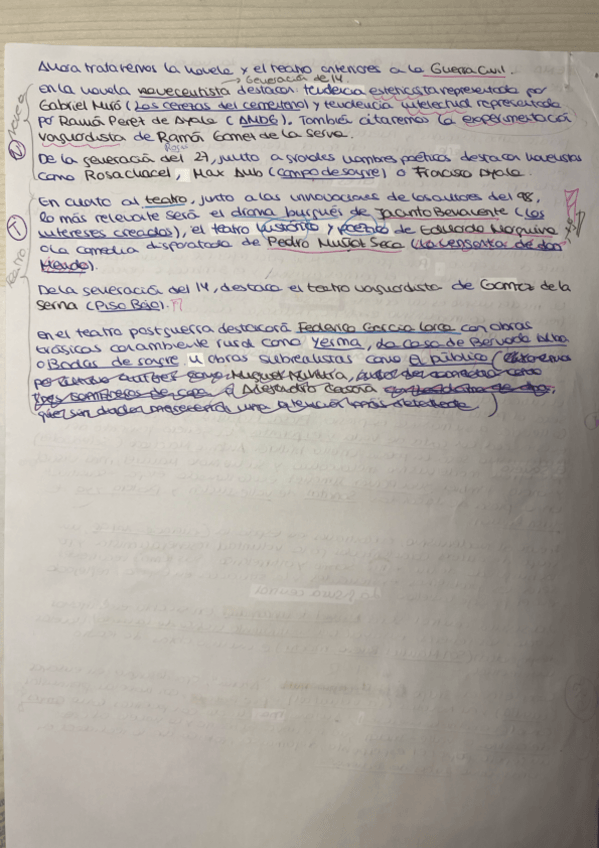 Ahora trataremos la novela y el teatro anteriores a la Guerra Civil.
→ Generación de 14.
En la novela novecentista destacan: tendencia estencista representada por
Gabriel Miró (Las cerezas del cementerio) y tendencia intelectual representada
por Ramón Perez de Ayala (AMDG). También citaremos la experimentación
vanguardista de Ramón Gomez de la Serna.
Rosa
De la generación del 27, junto a grandes nombres poéticos destacan novelistas
como Rosa chacel, Max Aub (campo de sangre) o Francisco Ayala.
Novela
N
En cuanto al teatro, junto a las innovaciones de los autores del 98,
lo más relevante será el drama burgués de Jacinto Benavente (Los
intereses creados), el teatro histórico y poético de Eduardo Marquina
o la comedia disparatada de Pedro Muñoz Seca (la venganza de don
Mendo).
T
Teatro
De la generación del 14, destaca el teatro vanguardista de Gomez de la
Serna (Piso Bajo).
En el teatro postguerra destacará Federico García Lorca con obras
trásicas con ambiente rural como Yerma, La casa de Bernarda Alba
o Bodas de sangre u obras subrealistas como El público (
por Miguel Mihura, autor de comedia como
Tres sombreros de copa, Alejandro Casona
que sin duda merecerá una atención más detallada)